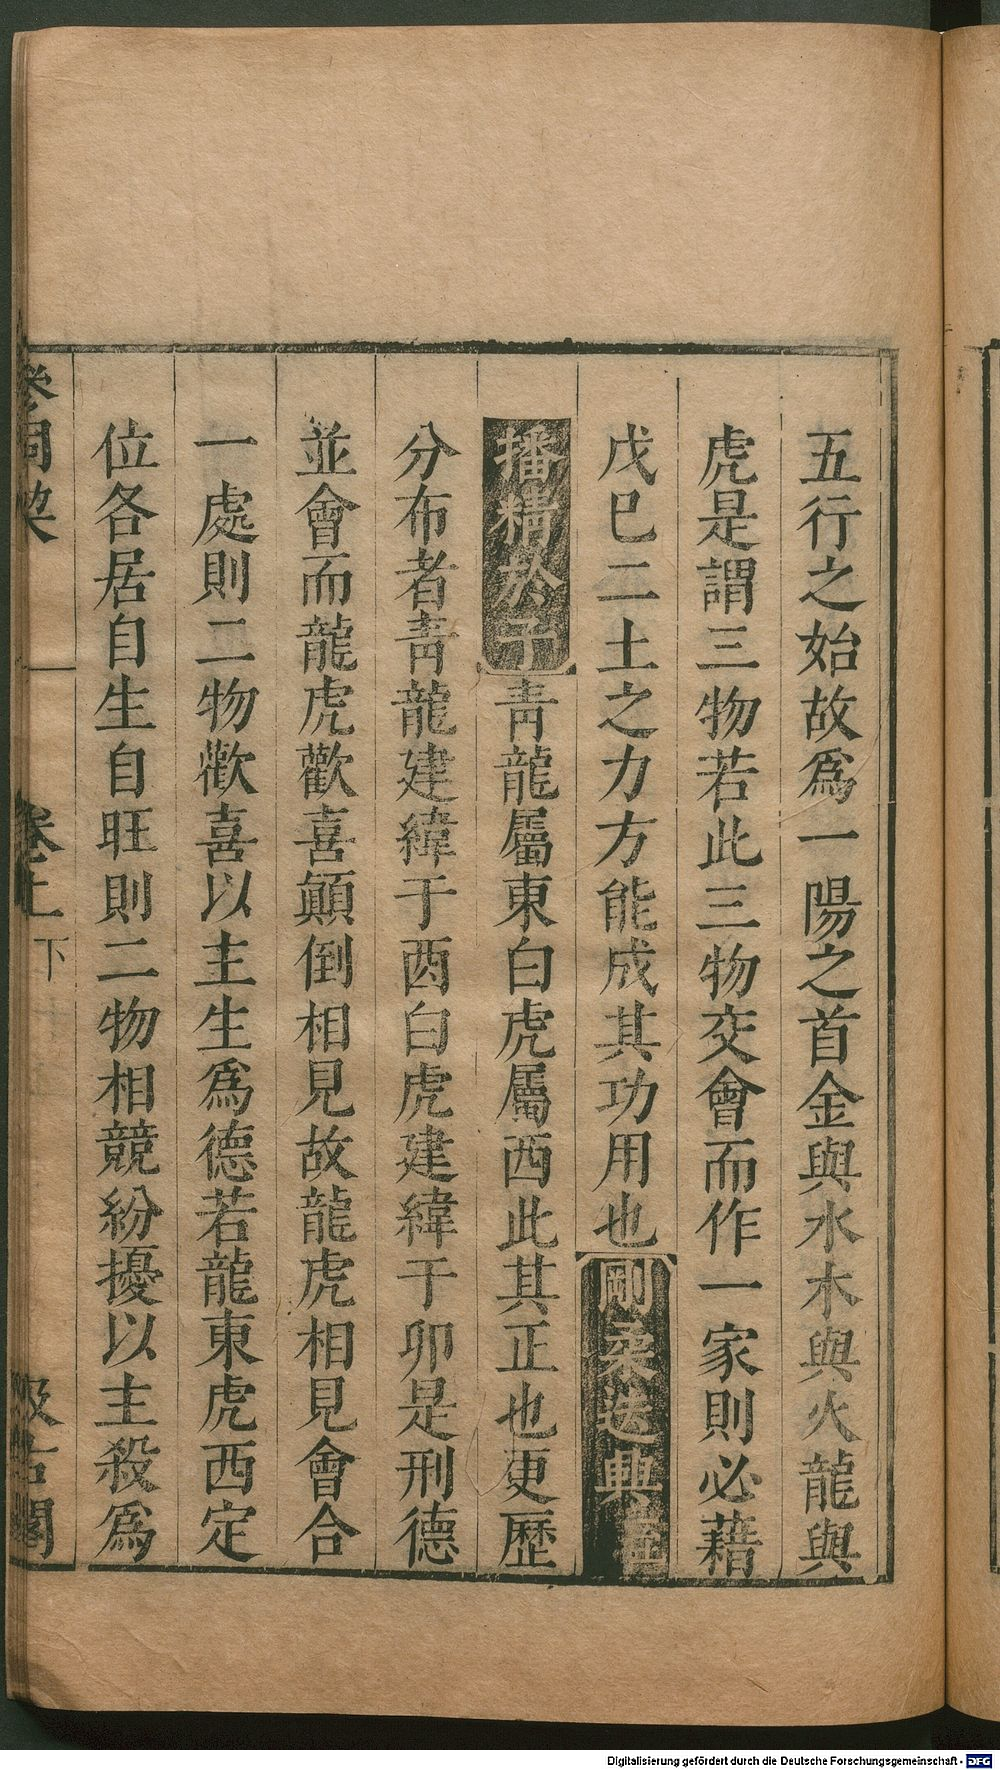 五行之始故爲一陽之首金與水木與火龍與
虎是謂三物若此三物交會而作一家則必藉
戊巳二土之力方能成其功用也剛柔迭興至
播精於子靑龍屬東白虎屬西此其正也更歷
分布者靑龍建緯于酉白虎建緯于卯是刑德
並會而龍虎歡喜顛倒相見故龍虎相見會合
一處則二物歡喜以主生爲德若龍東虎西定
位各居自生自旺則二物相競紛擾以主殺爲
參同契
卷上
下
汲古閣
Digitalisierung gefördert durch die Deutsche Forschungsgemeinschaft - DFG